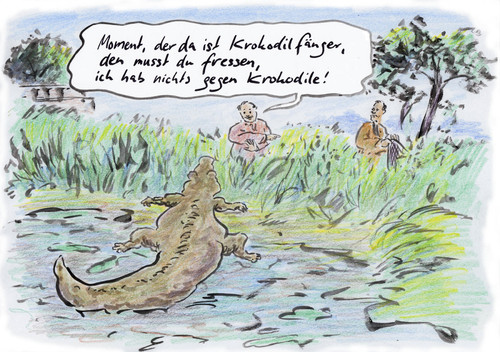 Moment, der da ist Krokodilfänger,
den musst du fressen,
ich hab nichts gegen Krokodile!